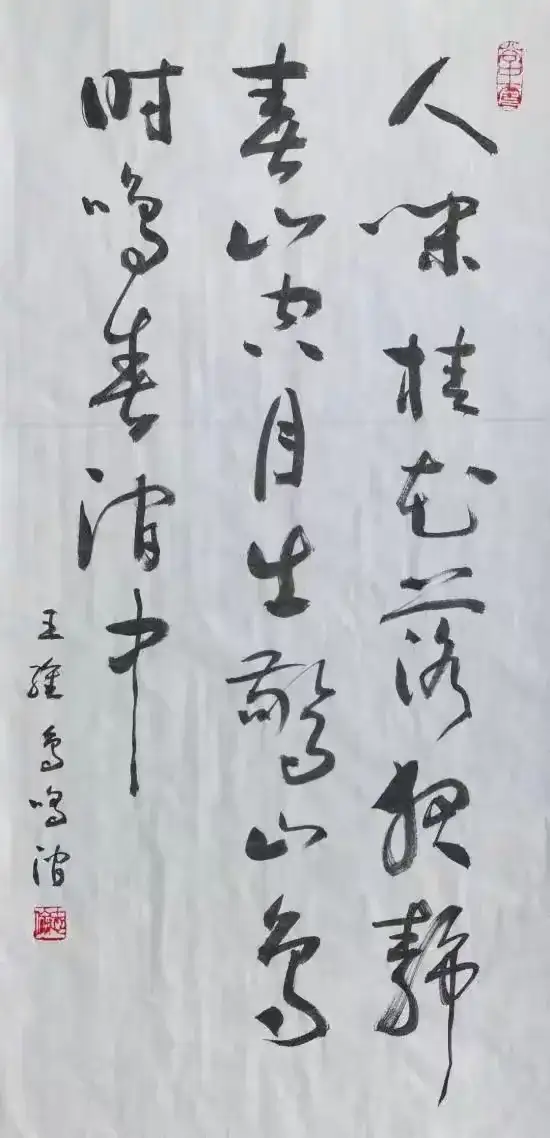 人闲桂花落夜静
春山空月出驚山鸟
时鸣春涧中
王维鸟鸣涧